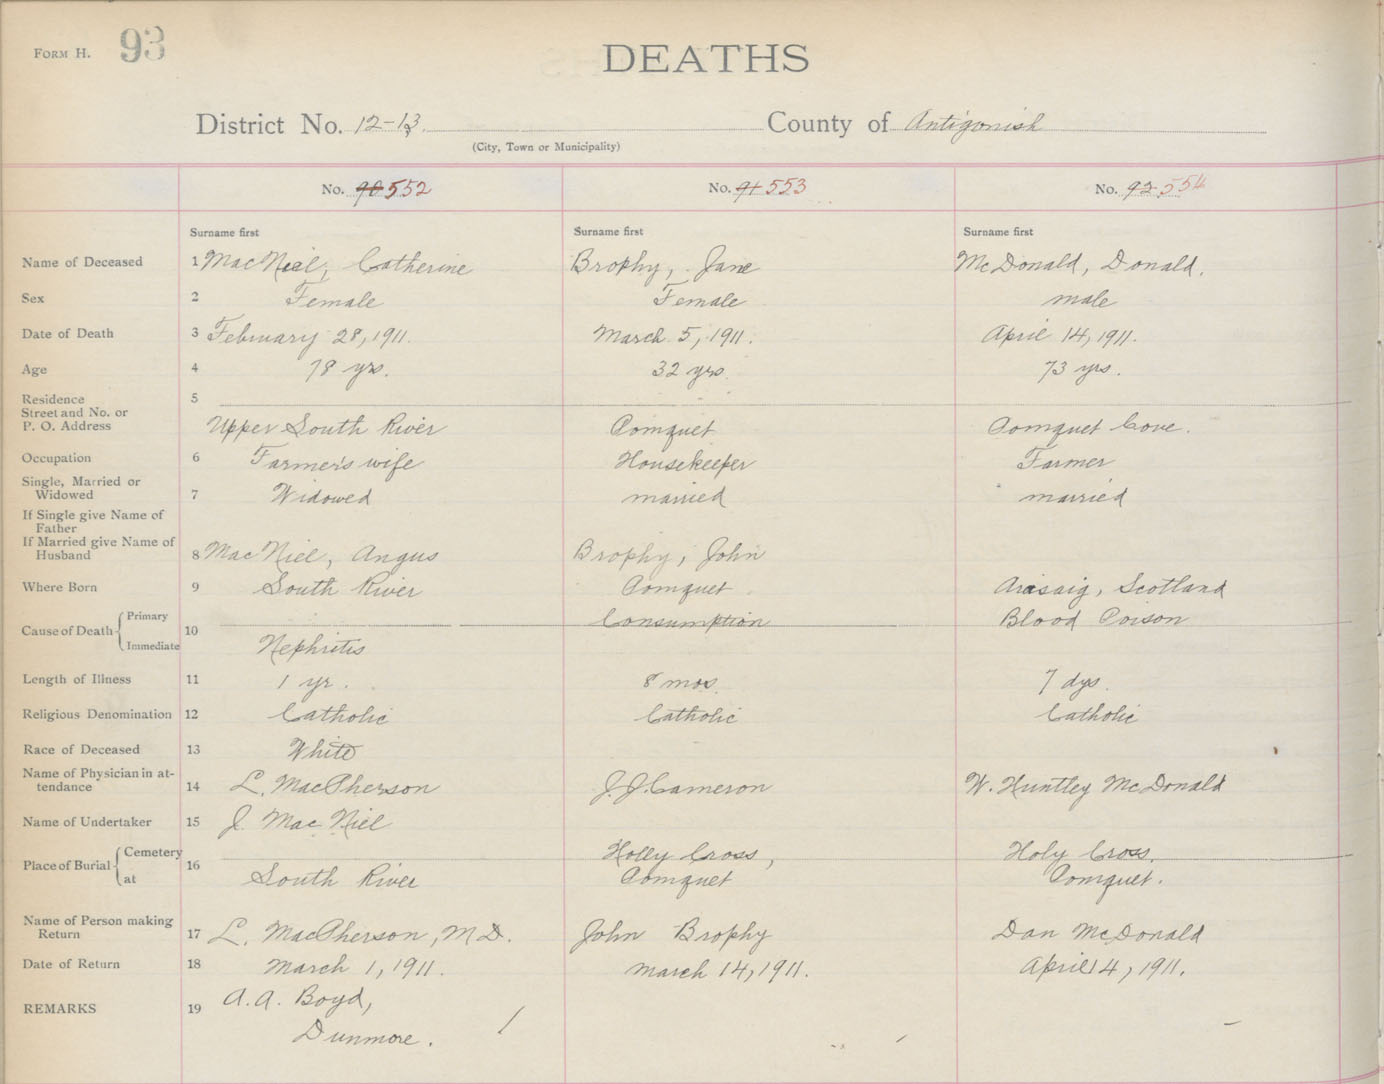 FORM H. 93
DEATHS
District No. 12-13. County of Antigonish
(City, Town or Municipality)
No. 90 552 No. 91 553 No. 92 554
Surname first Surname first Surname first
Name of Deceased 1 MacNeal, Catherine Brophy, Jane McDonald, Donald.
Sex 2 Female Female male
Date of Death 3 February 28, 1911. March 5, 1911. April 14, 1911.
Age 4 78 yrs. 32 yrs. 73 yrs.
Residence 5
Street and No. or
P. O. Address Upper South River Pomquet Pomquet Cove.
Occupation 6 Farmer's wife Housekeeper Farmer
Single, Married or
Widowed 7 Widowed married married
If Single give Name of
Father
If Married give Name of
Husband 8 MacNiel, Angus Brophy, John
Where Born 9 South River Pomquet Arisaig, Scotland
Cause of Death 10 Primary Consumption Blood Poison
Immediate Nephritis
Length of Illness 11 1 yr. 8 mos. 7 dys.
Religious Denomination 12 Catholic Catholic Catholic
Race of Deceased 13 White
Name of Physician in at-
tendance 14 L. MacPherson J. J. Cameron W. Huntley McDonald
Name of Undertaker 15 J. MacNiel
Place of Burial 16 Cemetery Holly Cross, Holy Cross.
at South River Pomquet Pomquet.
Name of Person making
Return 17 L. MacPherson, M.D. John Brophy Dan McDonald
Date of Return 18 March 1, 1911. March 14, 1911. April 14, 1911.
REMARKS 19 A. A. Boyd,
Dunmore.